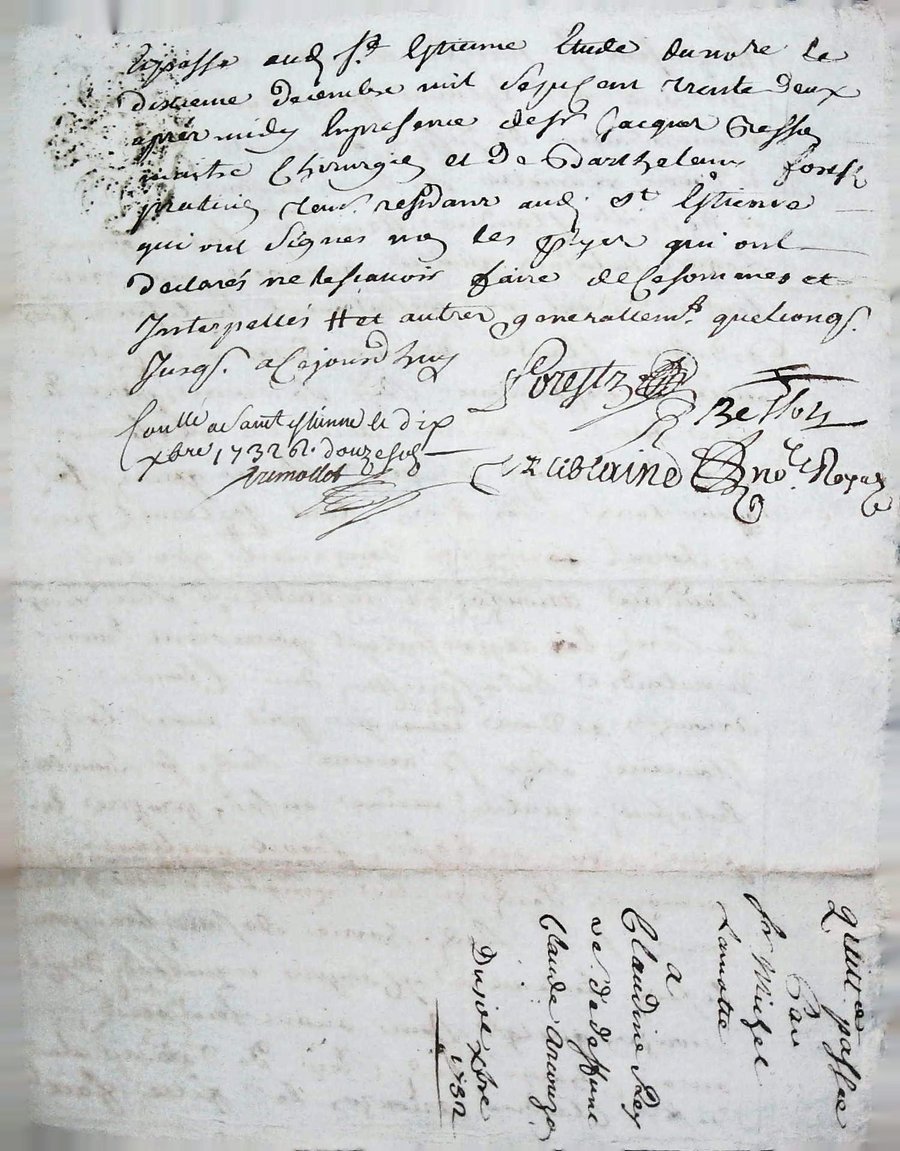 et passé aud. St. Estienne Etude du no.re le
dixieme decembre mil sept cent trente deux
après midy En presence de Sr. Jacques
maitre Chirurgien et de Barthelemy forest
praticien tous residans aud. St. Estienne
qui ont signés non les ptyes qui ont
declarés ne le scavoir faire de ce sommés et
Interpellés # et autres generallem.t quelconqs.
Jusqs. a cejourdhuy
Forest
Conllé a Saint estienne le dix
xbre 1732 R. douze sols
Tremollet
no.re Royal
Quitt.ce passée
Par
Sr Michel
Lamotte
a
Claudine Rey
ve. de deffunt
Claude
Du 10e xbre
1732